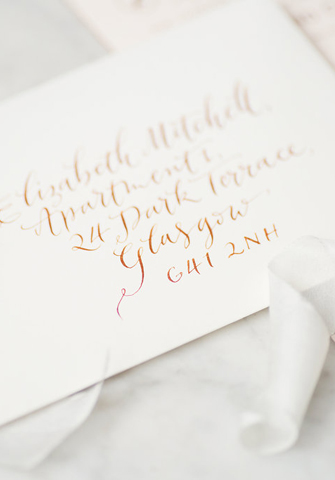 Elizabeth Mitchell,
Apartment 1,
24 Dark Terrace,
Glasgow,
G41 2NH